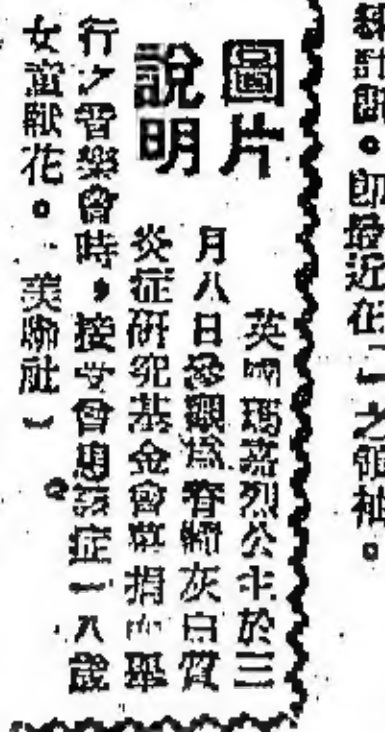 計劃。即最近在二之領袖。
圖片
說明
英國瑪嘉烈公主於三
月八日參觀為脊髓灰白質
炎症研究基金會募捐而舉
行之音樂會時，接受曾患該症一八歲
女童獻花。（美聯社）。